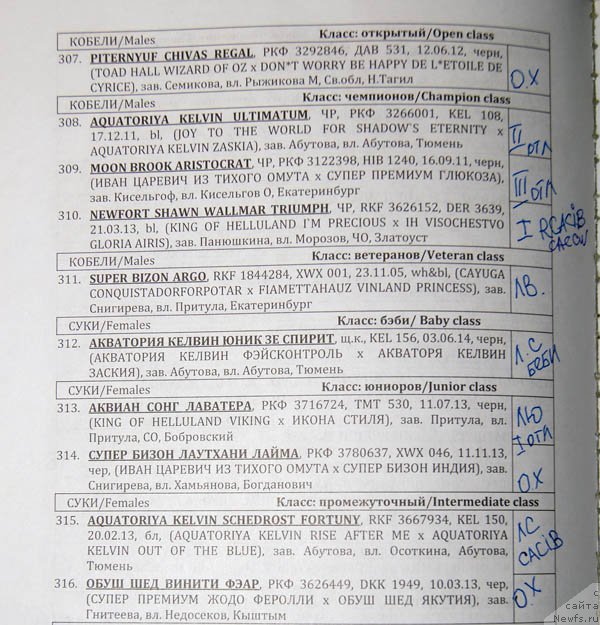 КОБЕЛИ/Males Класс: открытый/Open class
307. PITERNYUF CHIVAS REGAL, РКФ 3292846, ДАВ 531, 12.06.12, черн,
(TOAD HALL WIZARD OF OZ x DON*T WORRY BE HAPPY DE L*ETOILE DE
CYRICE), зав. Семикова, вл. Рыжикова М, Св.обл, Н.Тагил
ОХ
КОБЕЛИ/Males Класс: чемпионов/Champion class
308. AQUATORIYA KELVIN ULTIMATUM, ЧР, РКФ 3266001, KEL 108,
17.12.11, bl, (JOY TO THE WORLD FOR SHADOW'S ETERNITY x
AQUATORIYA KELVIN ZASKIA), зав. Абутова, вл. Абутова, Тюмень
II отл
309. MOON BROOK ARISTOCRAT, ЧР, РКФ 3122398, HIB 1240, 16.09.11, черн,
(ИВАН ЦАРЕВИЧ ИЗ ТИХОГО ОМУТА x СУПЕР ПРЕМИУМ ГЛЮКОЗА),
зав. Кисельгоф, вл. Кисельгов О, Екатеринбург
III отл
310. NEWFORT SHAWN WALLMAR TRIUMPH, ЧР, RKF 3626152, DER 3639,
21.03.13, bl, (KING OF HELLULAND I'M PRECIOUS x IH VISOCHESTVO
GLORIA AIRIS), зав. Панюшкина, вл. Морозов, ЧО, Златоуст
I RCACIB
КОБЕЛИ/Males Класс: ветеранов/Veteran class
311. SUPER BIZON ARGO, RKF 1844284, XWX 001, 23.11.05, wh&bl, (CAYUGA
CONQUISTADORFORPOTAR x FIAMETTAHAUZ VINLAND PRINCESS), зав.
Снигирева, вл. Притула, Екатеринбург
ЛВ.
СУКИ/Females Класс: бэби/ Baby class
312. АКВАТОРИЯ КЕЛВИН ЮНИК ЗЕ СПИРИТ, щ.к., KEL 156, 03.06.14, черн,
(АКВАТОРИЯ КЕЛВИН ФЭЙСКОНТРОЛЬ x АКВАТОРЯ КЕЛВИН
ЗАСКИЯ), зав. Абутова, вл. Абутова, Тюмень
Л.С
БЭБИ
СУКИ/Females Класс: юниоров/Junior class
313. АКВИАН СОНГ ЛАВАТЕРА, РКФ 3716724, ТМТ 530, 11.07.13, черн,
(KING OF HELLULAND VIKING x ИКОНА СТИЛЯ), зав. Притула, вл.
Притула, СО, Бобровский
ЛЮ
I отл
314. СУПЕР БИЗОН ЛАУТХАНИ ЛАЙМА, РКФ 3780637, XWX 046, 11.11.13,
чер, (ИВАН ЦАРЕВИЧ ИЗ ТИХОГО ОМУТА x СУПЕР БИЗОН ИНДИЯ), зав.
Снигирева, вл. Хамьянова, Богданович
ОХ
СУКИ/Females Класс: промежуточный/Intermediate class
315. AQUATORIYA KELVIN SCHEDROST FORTUNY, RKF 3667934, KEL 150,
20.02.13, бл, (AQUATORIYA KELVIN RISE AFTER ME x AQUATORIYA
KELVIN OUT OF THE BLUE), зав. Абутова, вл. Осоткина, Абутова,
Тюмень
ЛС
CACIB
316. ОБУШ ШЕД ВИНИТИ ФЭАР, РКФ 3626449, DKK 1949, 10.03.13, чер,
(СУПЕР ПРЕМИУМ ЖОДО ФЕРОЛЛИ x ОБУШ ШЕД ЯКУТИЯ), зав.
Гнитеева, вл. Недосеков, Кыштым
О.Х
с
сайта
Newfs.ru